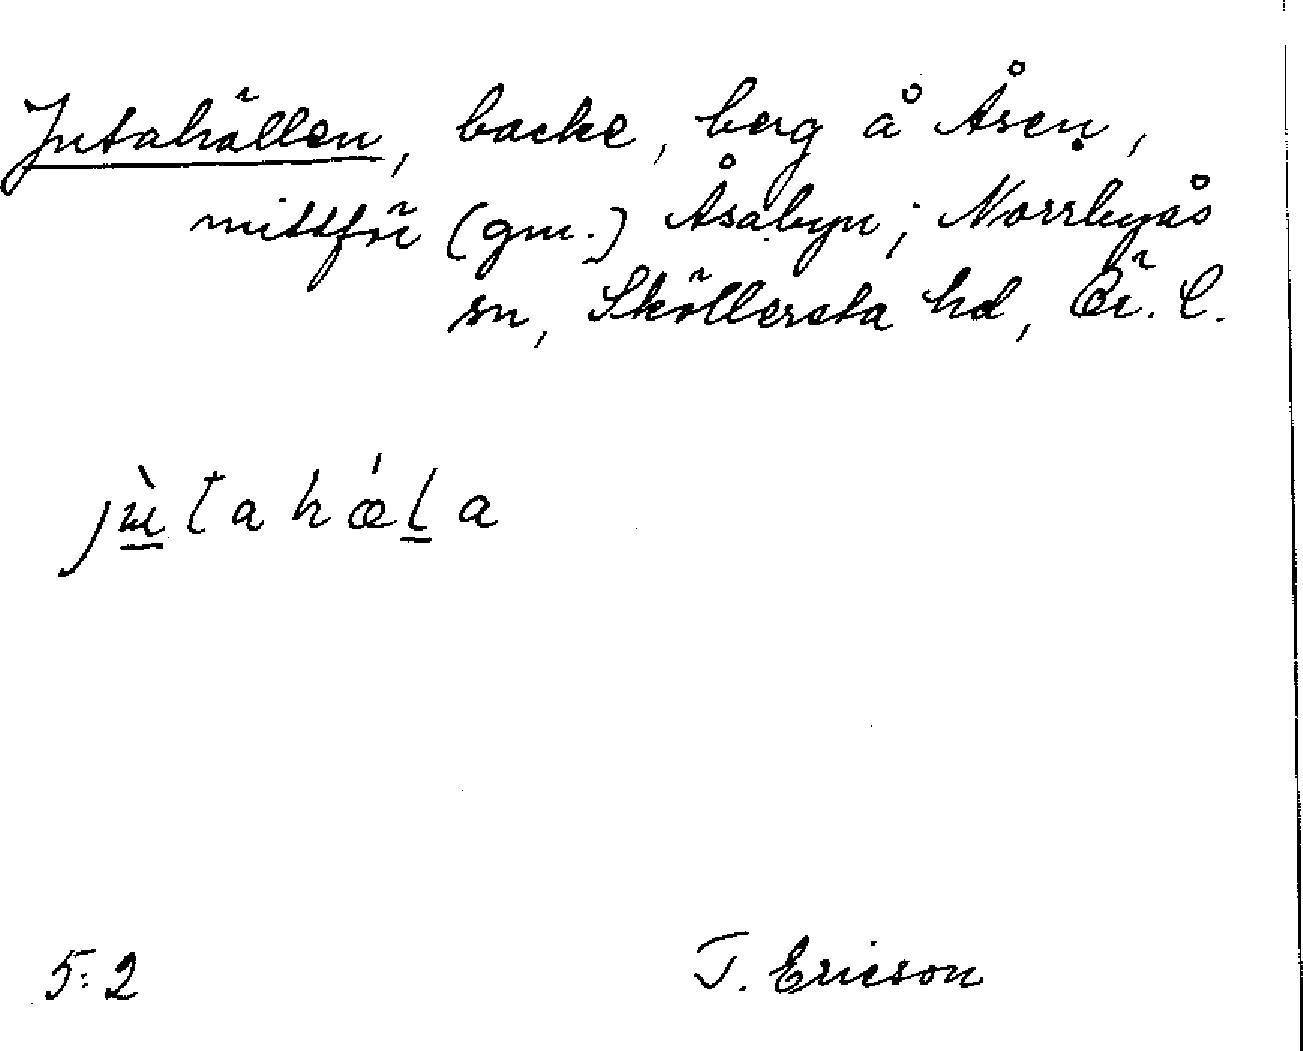 Jutahällen, backe, berg å Åsen,
mittför (gm.) Åsabyn; Norrbyås
sn, Sköllersta hd, Ör. l.
jɯ̀tahǽla
5:2 T. Ericson